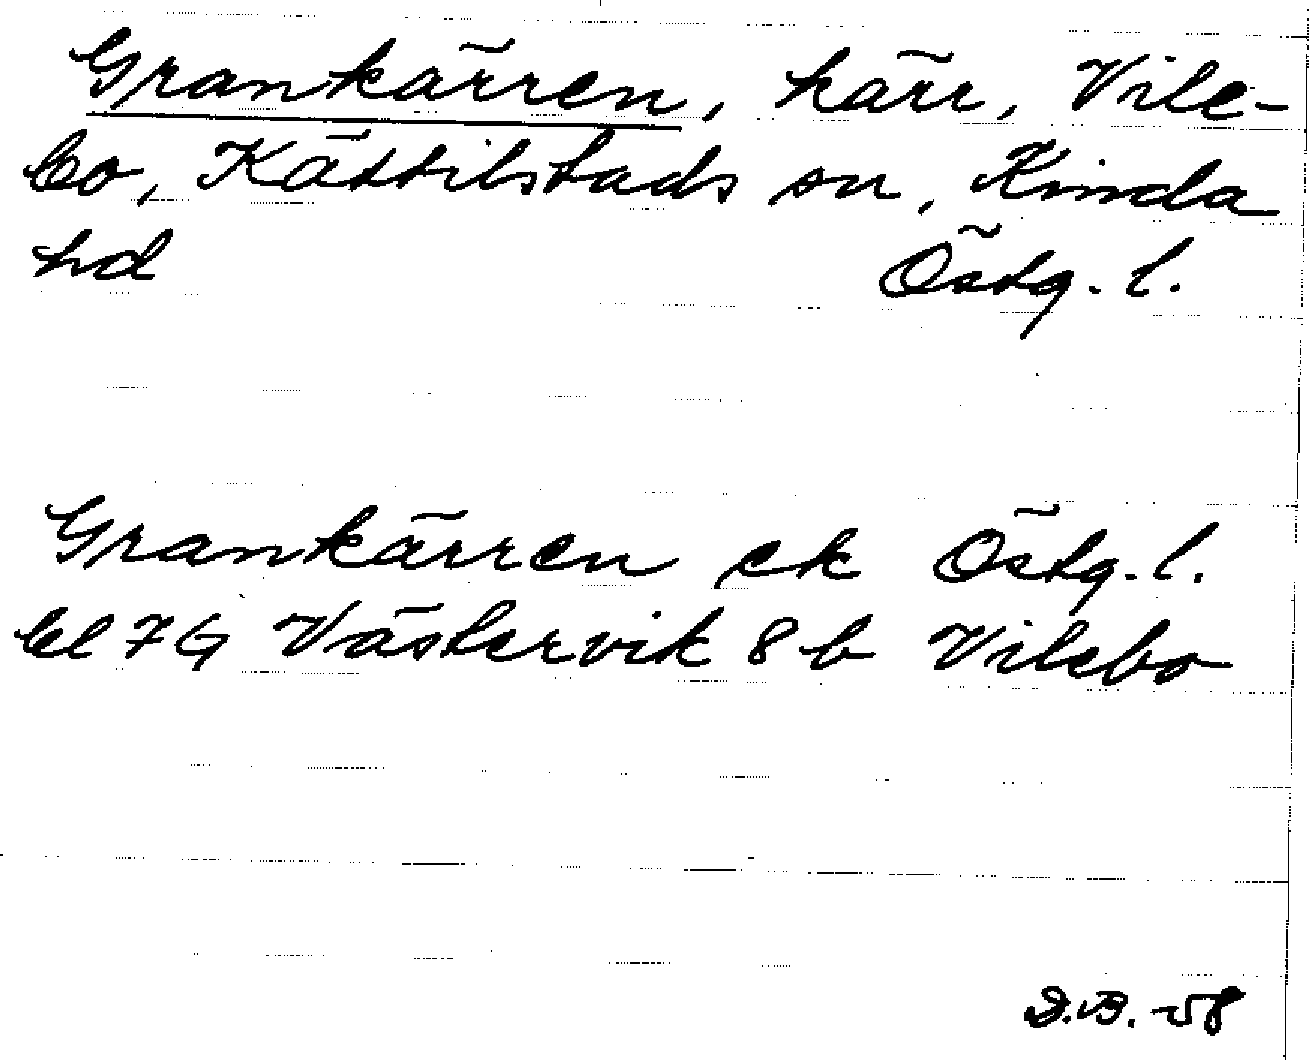 Grankärren, kärr, Vile-
bo, Kättilstads sn, Kinda
hd Östg. l.
Grankärren ek Östg. l.
bl 7G Västervik 8 b Vilebo
-58